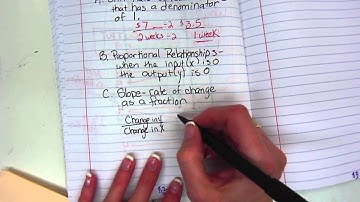 that has a denominator
of 1.
$7 ÷2 $3.5
2 weeks ÷2 1 week
B. Proportional Relationships -
when the input(x) is 0
the output(y) is 0
C. Slope - rate of change
as a fraction
Change in y
Change in x